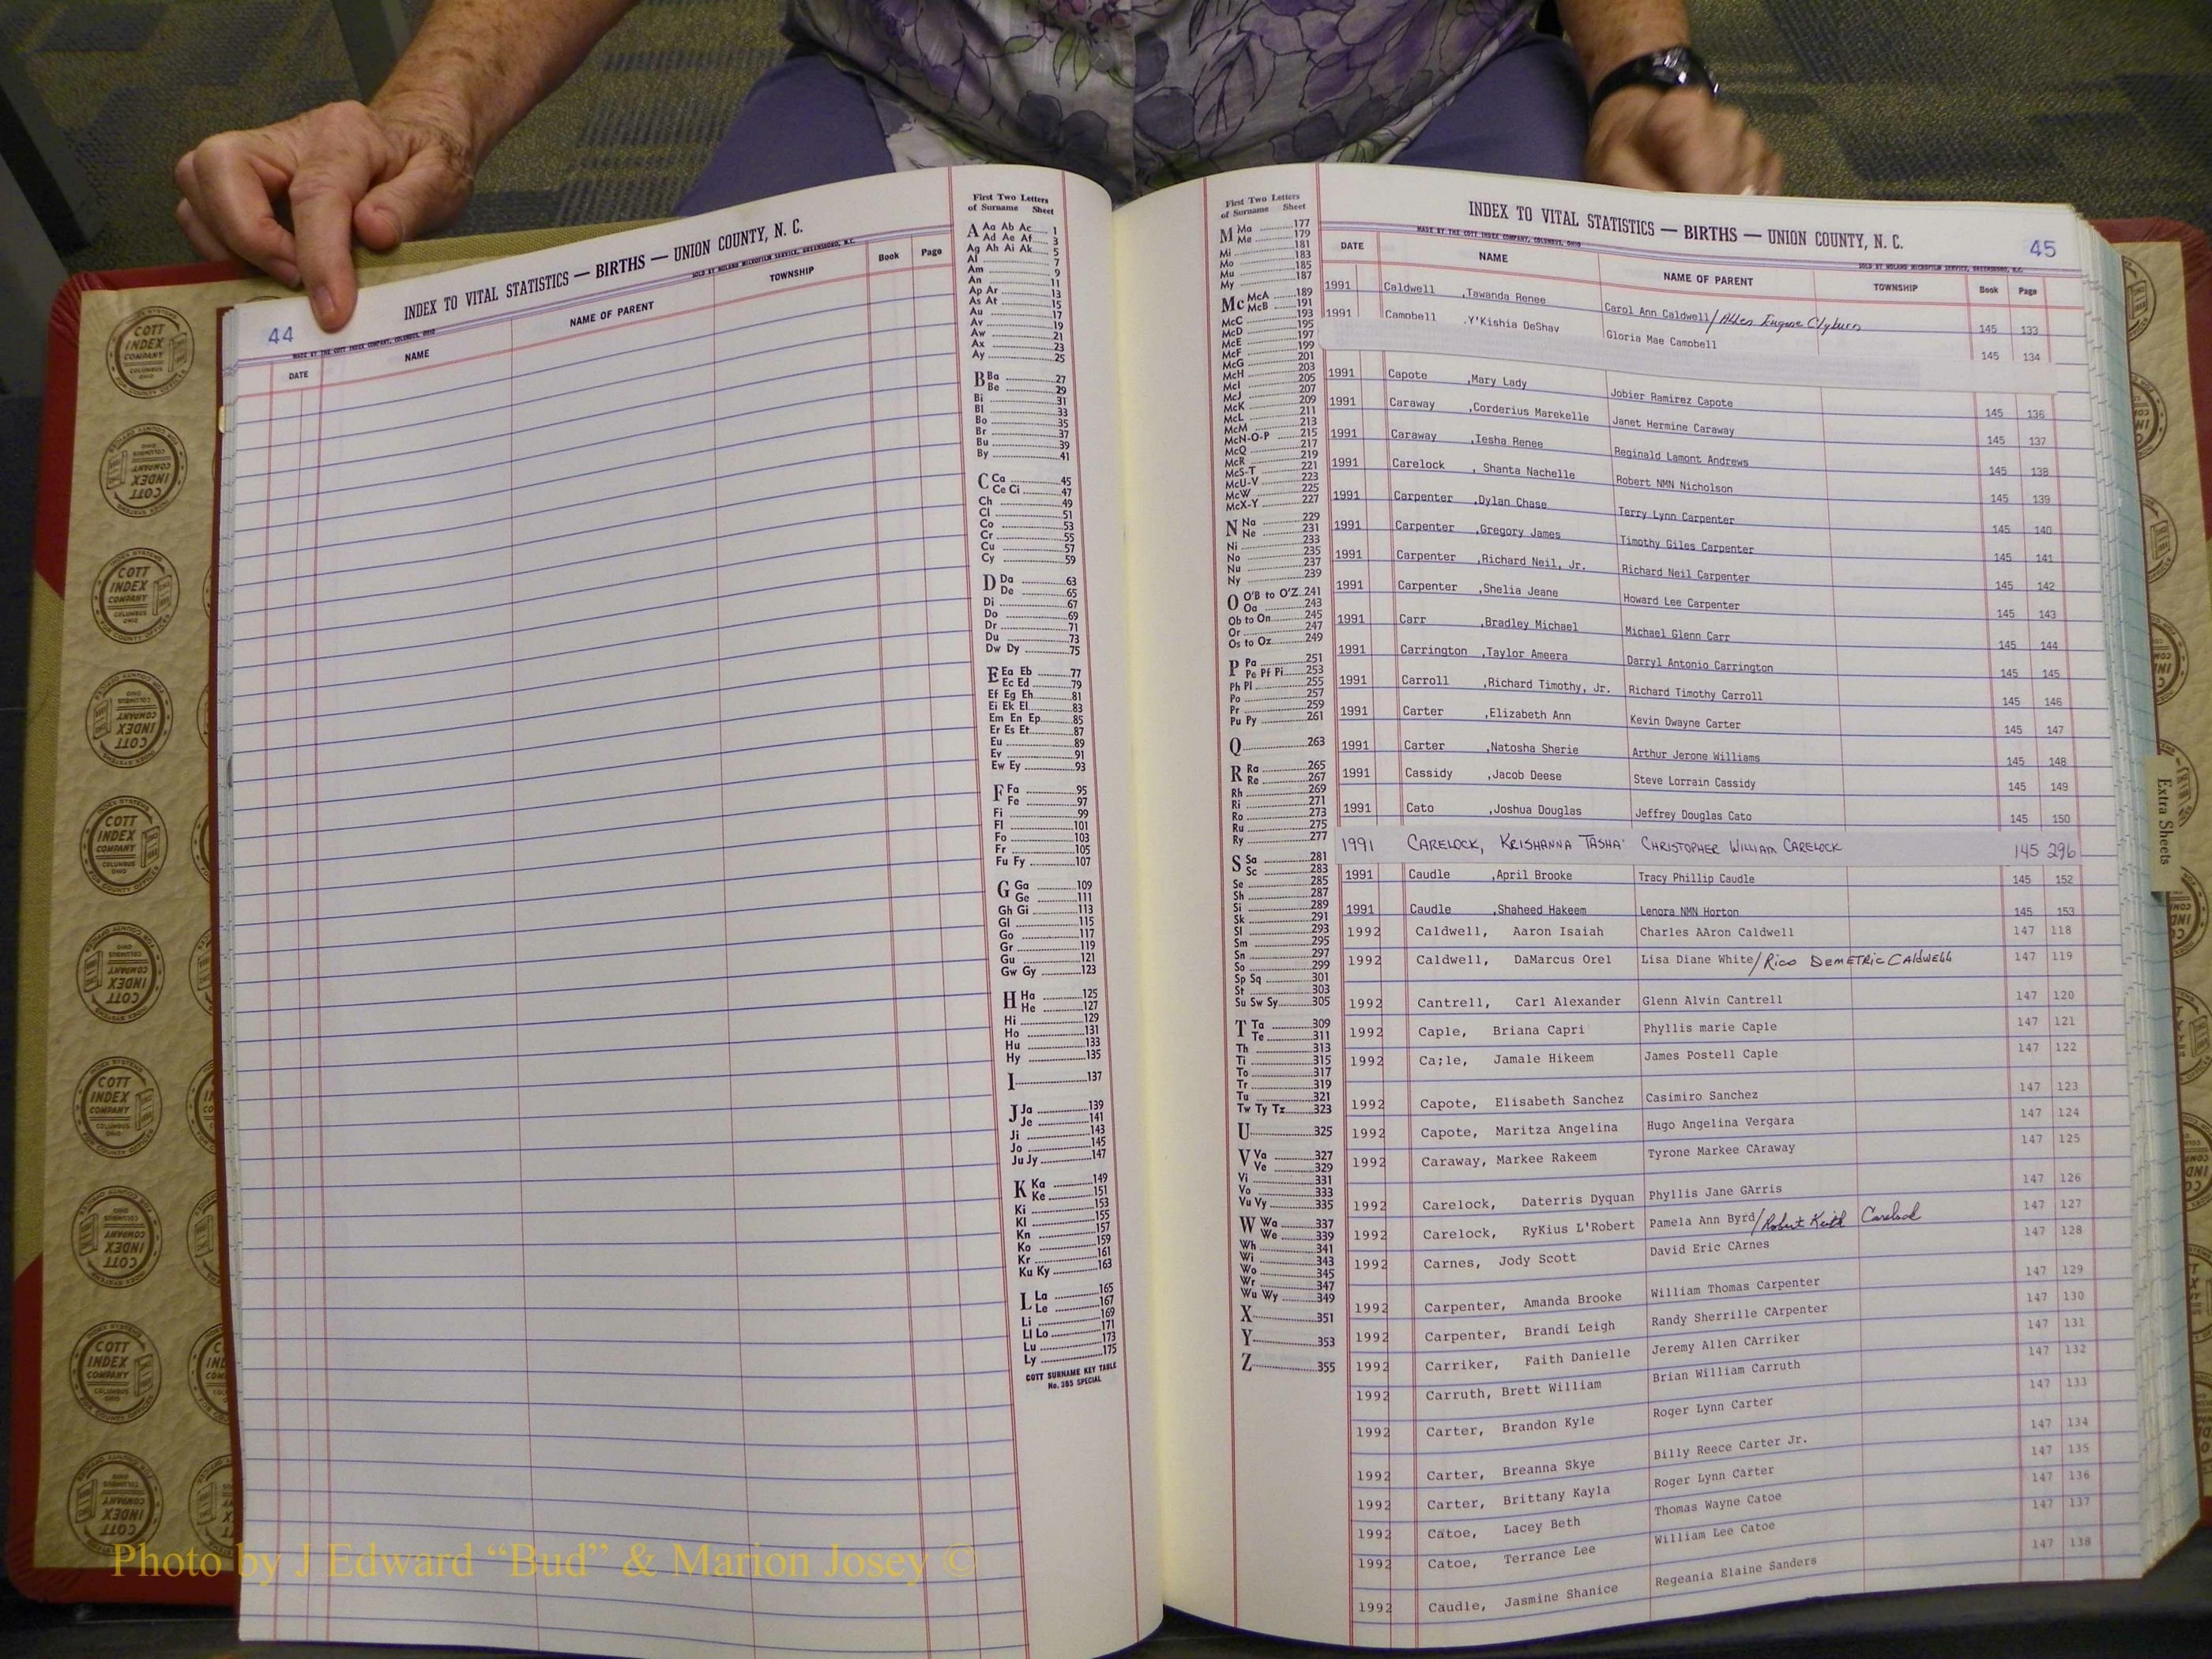 44
INDEX TO VITAL STATISTICS — BIRTHS — UNION COUNTY, N. C.
MADE BY THE COTT INDEX COMPANY, COLUMBUS, OHIO
SOLD BY NOLAND MICROFILM SERVICE, GREENSBORO, N.C.
DATE NAME NAME OF PARENT TOWNSHIP Book Page
First Two Letters
of Surname Sheet
A Aa Ab Ac 1
Ad Ae Af 3
Ag Ah Ai Ak 5
Al 7
Am 9
An 11
Ap Ar 13
As At 15
Au 17
Av 19
Aw 21
Ax 23
Ay 25
B Ba 27
Be 29
Bi 31
Bl 33
Bo 35
Br 37
Bu 39
By 41
C Ca 45
Ce Ci 47
Ch 49
Cl 51
Co 53
Cr 55
Cu 57
Cy 59
D Da 63
De 65
Di 67
Do 69
Dr 71
Du 73
Dw Dy 75
E Ea Eb 77
Ec Ed 79
Ef Eg Eh 81
Ei Ek El 83
Em En Ep 85
Er Es Et 87
Eu 89
Ev 91
Ew Ey 93
F Fa 95
Fe 97
Fi 99
Fl 101
Fo 103
Fr 105
Fu Fy 107
G Ga 109
Ge 111
Gh Gi 113
Gl 115
Go 117
Gr 119
Gu 121
Gw Gy 123
H Ha 125
He 127
Hi 129
Ho 131
Hu 133
Hy 135
I 137
J Ja 139
Je 141
Ji 143
Jo 145
Ju Jy 147
K Ka 149
Ke 151
Ki 153
Kl 155
Kn 157
Ko 159
Kr 161
Ku Ky 163
L La 165
Le 167
Li 169
Ll Lo 171
Lu 173
Ly 175
COTT SURNAME KEY TABLE
No. 385 SPECIAL
First Two Letters
of Surname Sheet
M Ma 177
Me 179
Mi 181
Mo 183
Mu 185
My 187
Mc McA 189
McB 191
McC 193
McD 195
McE 197
McF 199
McG 201
McH 203
McI 205
McJ 207
McK 209
McL 211
McM 213
McN-O-P 215
McQ 217
McR 219
McS-T 221
McU-V 223
McW 225
McX-Y 227
N Na 229
Ne 231
Ni 233
No 235
Nu 237
Ny 239
O O'B to O'Z 241
Oa 243
Ob to On 245
Or 247
Os to Oz 249
P Pa 251
Pe Pf Pi 253
Ph Pl 255
Po 257
Pr 259
Pu Py 261
Q 263
R Ra 265
Re 267
Rh 269
Ri 271
Ro 273
Ru 275
Ry 277
S Sa 281
Sc 283
Se 285
Sh 287
Si 289
Sk 291
Sl 293
Sm 295
Sn 297
So 299
Sp Sq 301
St 303
Su Sw Sy 305
T Ta 309
Te 311
Th 313
Ti 315
To 317
Tr 319
Tu 321
Tw Ty Tz 323
U 325
V Va 327
Ve 329
Vi 331
Vo 333
Vu Vy 335
W Wa 337
We 339
Wh 341
Wi 343
Wo 345
Wr 347
Wu Wy 349
X 351
Y 353
Z 355
INDEX TO VITAL STATISTICS — BIRTHS — UNION COUNTY, N. C.
45
MADE BY THE COTT INDEX COMPANY, COLUMBUS, OHIO
SOLD BY NOLAND MICROFILM SERVICE, GREENSBORO, N.C.
DATE NAME NAME OF PARENT TOWNSHIP Book Page
1991 Caldwell ,Tawanda Renee Carol Ann Caldwell/ Eugene Clyburn 145 133
1991 Campbell ,Y'Kishia DeShav Gloria Mae Campbell 145 134
1991 Capote ,Mary Lady Jobier Ramirez Capote 145 136
1991 Caraway ,Corderius Marekelle Janet Hermine Caraway 145 137
1991 Caraway ,Iesha Renee Reginald Lamont Andrews 145 138
1991 Carelock , Shanta Nachelle Robert NMN Nicholson 145 139
1991 Carpenter ,Dylan Chase Terry Lynn Carpenter 145 140
1991 Carpenter ,Gregory James Timothy Giles Carpenter 145 141
1991 Carpenter ,Richard Neil, Jr. Richard Neil Carpenter 145 142
1991 Carpenter ,Shelia Jeane Howard Lee Carpenter 145 143
1991 Carr ,Bradley Michael Michael Glenn Carr 145 144
1991 Carrington ,Taylor Ameera Darryl Antonio Carrington 145 145
1991 Carroll ,Richard Timothy, Jr. Richard Timothy Carroll 145 146
1991 Carter ,Elizabeth Ann Kevin Dwayne Carter 145 147
1991 Carter ,Natosha Sherie Arthur Jerone Williams 145 148
1991 Cassidy ,Jacob Deese Steve Lorrain Cassidy 145 149
1991 Cato ,Joshua Douglas Jeffrey Douglas Cato 145 150
1991 CARELOCK, KRISHANNA TASHA' CHRISTOPHER WILLIAM CARELOCK 145 296
1991 Caudle ,April Brooke Tracy Phillip Caudle 145 152
1991 Caudle ,Shaheed Hakeem Lenora NMN Horton 145 153
1992 Caldwell, Aaron Isaiah Charles AAron Caldwell 147 118
1992 Caldwell, DaMarcus Orel Lisa Diane White/RICO DEMETRIC CALDWELL 147 119
1992 Cantrell, Carl Alexander Glenn Alvin Cantrell 147 120
1992 Caple, Briana Capri Phyllis marie Caple 147 121
1992 Ca;le, Jamale Hikeem James Postell Caple 147 122
1992 Capote, Elisabeth Sanchez Casimiro Sanchez 147 123
1992 Capote, Maritza Angelina Hugo Angelina Vergara 147 124
1992 Caraway, Markee Rakeem Tyrone Markee CAraway 147 125
1992 Carelock, Daterris Dyquan Phyllis Jane GArris 147 126
1992 Carelock, RyKius L'Robert Pamela Ann Byrd/Robert Keith Carelock 147 127
1992 Carnes, Jody Scott David Eric CArnes 147 128
1992 Carpenter, Amanda Brooke William Thomas Carpenter 147 129
1992 Carpenter, Brandi Leigh Randy Sherrille CArpenter 147 130
1992 Carriker, Faith Danielle Jeremy Allen CArriker 147 131
1992 Carruth, Brett William Brian William Carruth 147 132
1992 Carter, Brandon Kyle Roger Lynn Carter 147 133
1992 Carter, Breanna Skye Billy Reece Carter Jr. 147 134
1992 Carter, Brittany Kayla Roger Lynn Carter 147 135
1992 Catoe, Lacey Beth Thomas Wayne Catoe 147 136
1992 Catoe, Terrance Lee William Lee Catoe 147 137
1992 Caudle, Jasmine Shanice Regeania Elaine Sanders 147 138
Extra Sheets
COTT INDEX COMPANY COLUMBUS OHIO
Photo by J Edward “Bud” & Marion Josey ©